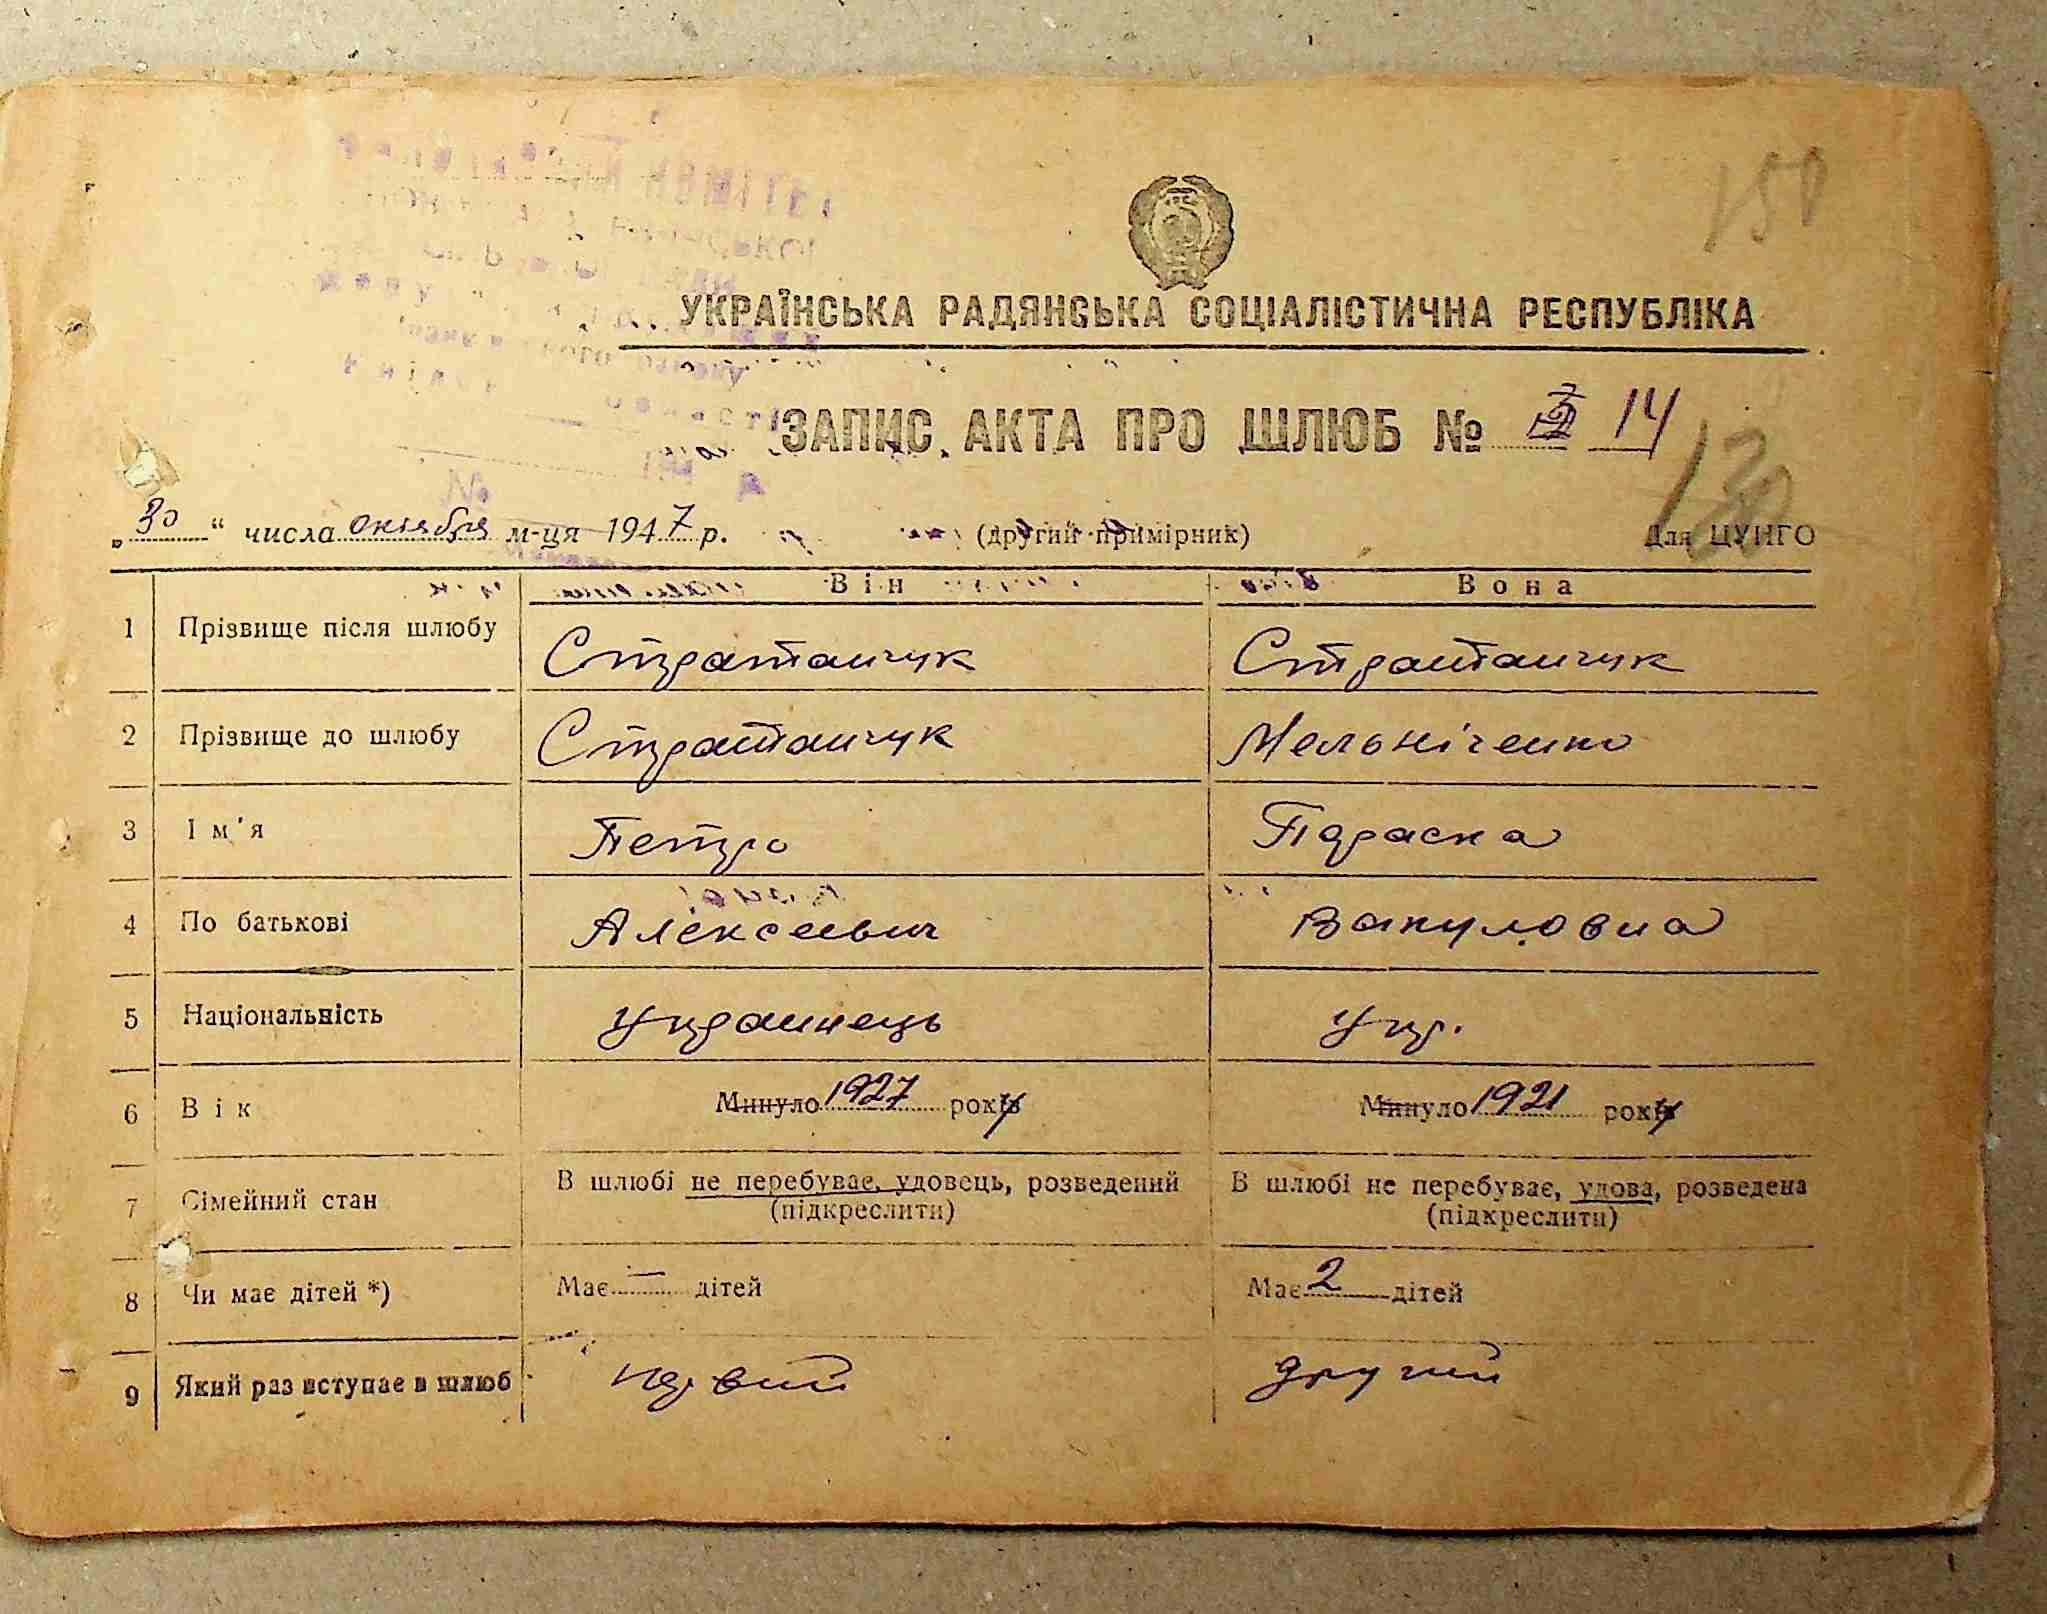 150
УКРАЇНСЬКА РАДЯНСЬКА СОЦІАЛІСТИЧНА РЕСПУБЛІКА
ЗАПИС АКТА ПРО ШЛЮБ № 14
130
„30“ числа октября м-ця 1947 р. (другий примірник) Для ЦУНГО
Він Вона
1 Прізвище після шлюбу Стратанчук Стратанчук
2 Прізвище до шлюбу Стратанчук Мельніченко
3 Ім'я Петро Параска
4 По батькові Алексеевич Вакуловна
5 Національність Украинець Укр.
6 Вік Минуло 1927 року Минуло 1921 року
7 Сімейний стан В шлюбі не перебуває, удовець, розведений В шлюбі не перебуває, удова, розведена
(підкреслити) (підкреслити)
8 Чи має дітей *) Має — дітей Має 2 дітей
9 Який раз вступає в шлюб первий другий